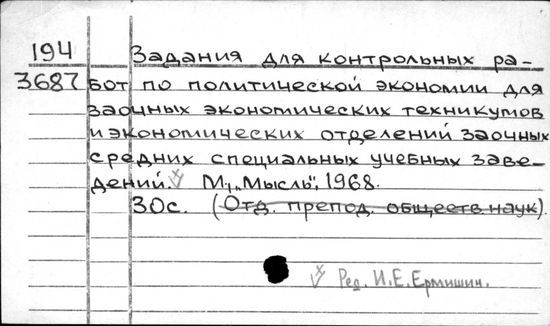 194 Задания для контрольных ра-
3687 бот по политической экономии для
заочных экономических техникумов
и экономических отделений заочных
средних специальных учебных заве-
дений. М., „Мысль", 1968.
30с. (Отд. препод. обществ наук).
Ред. И.Е.Ермишин.